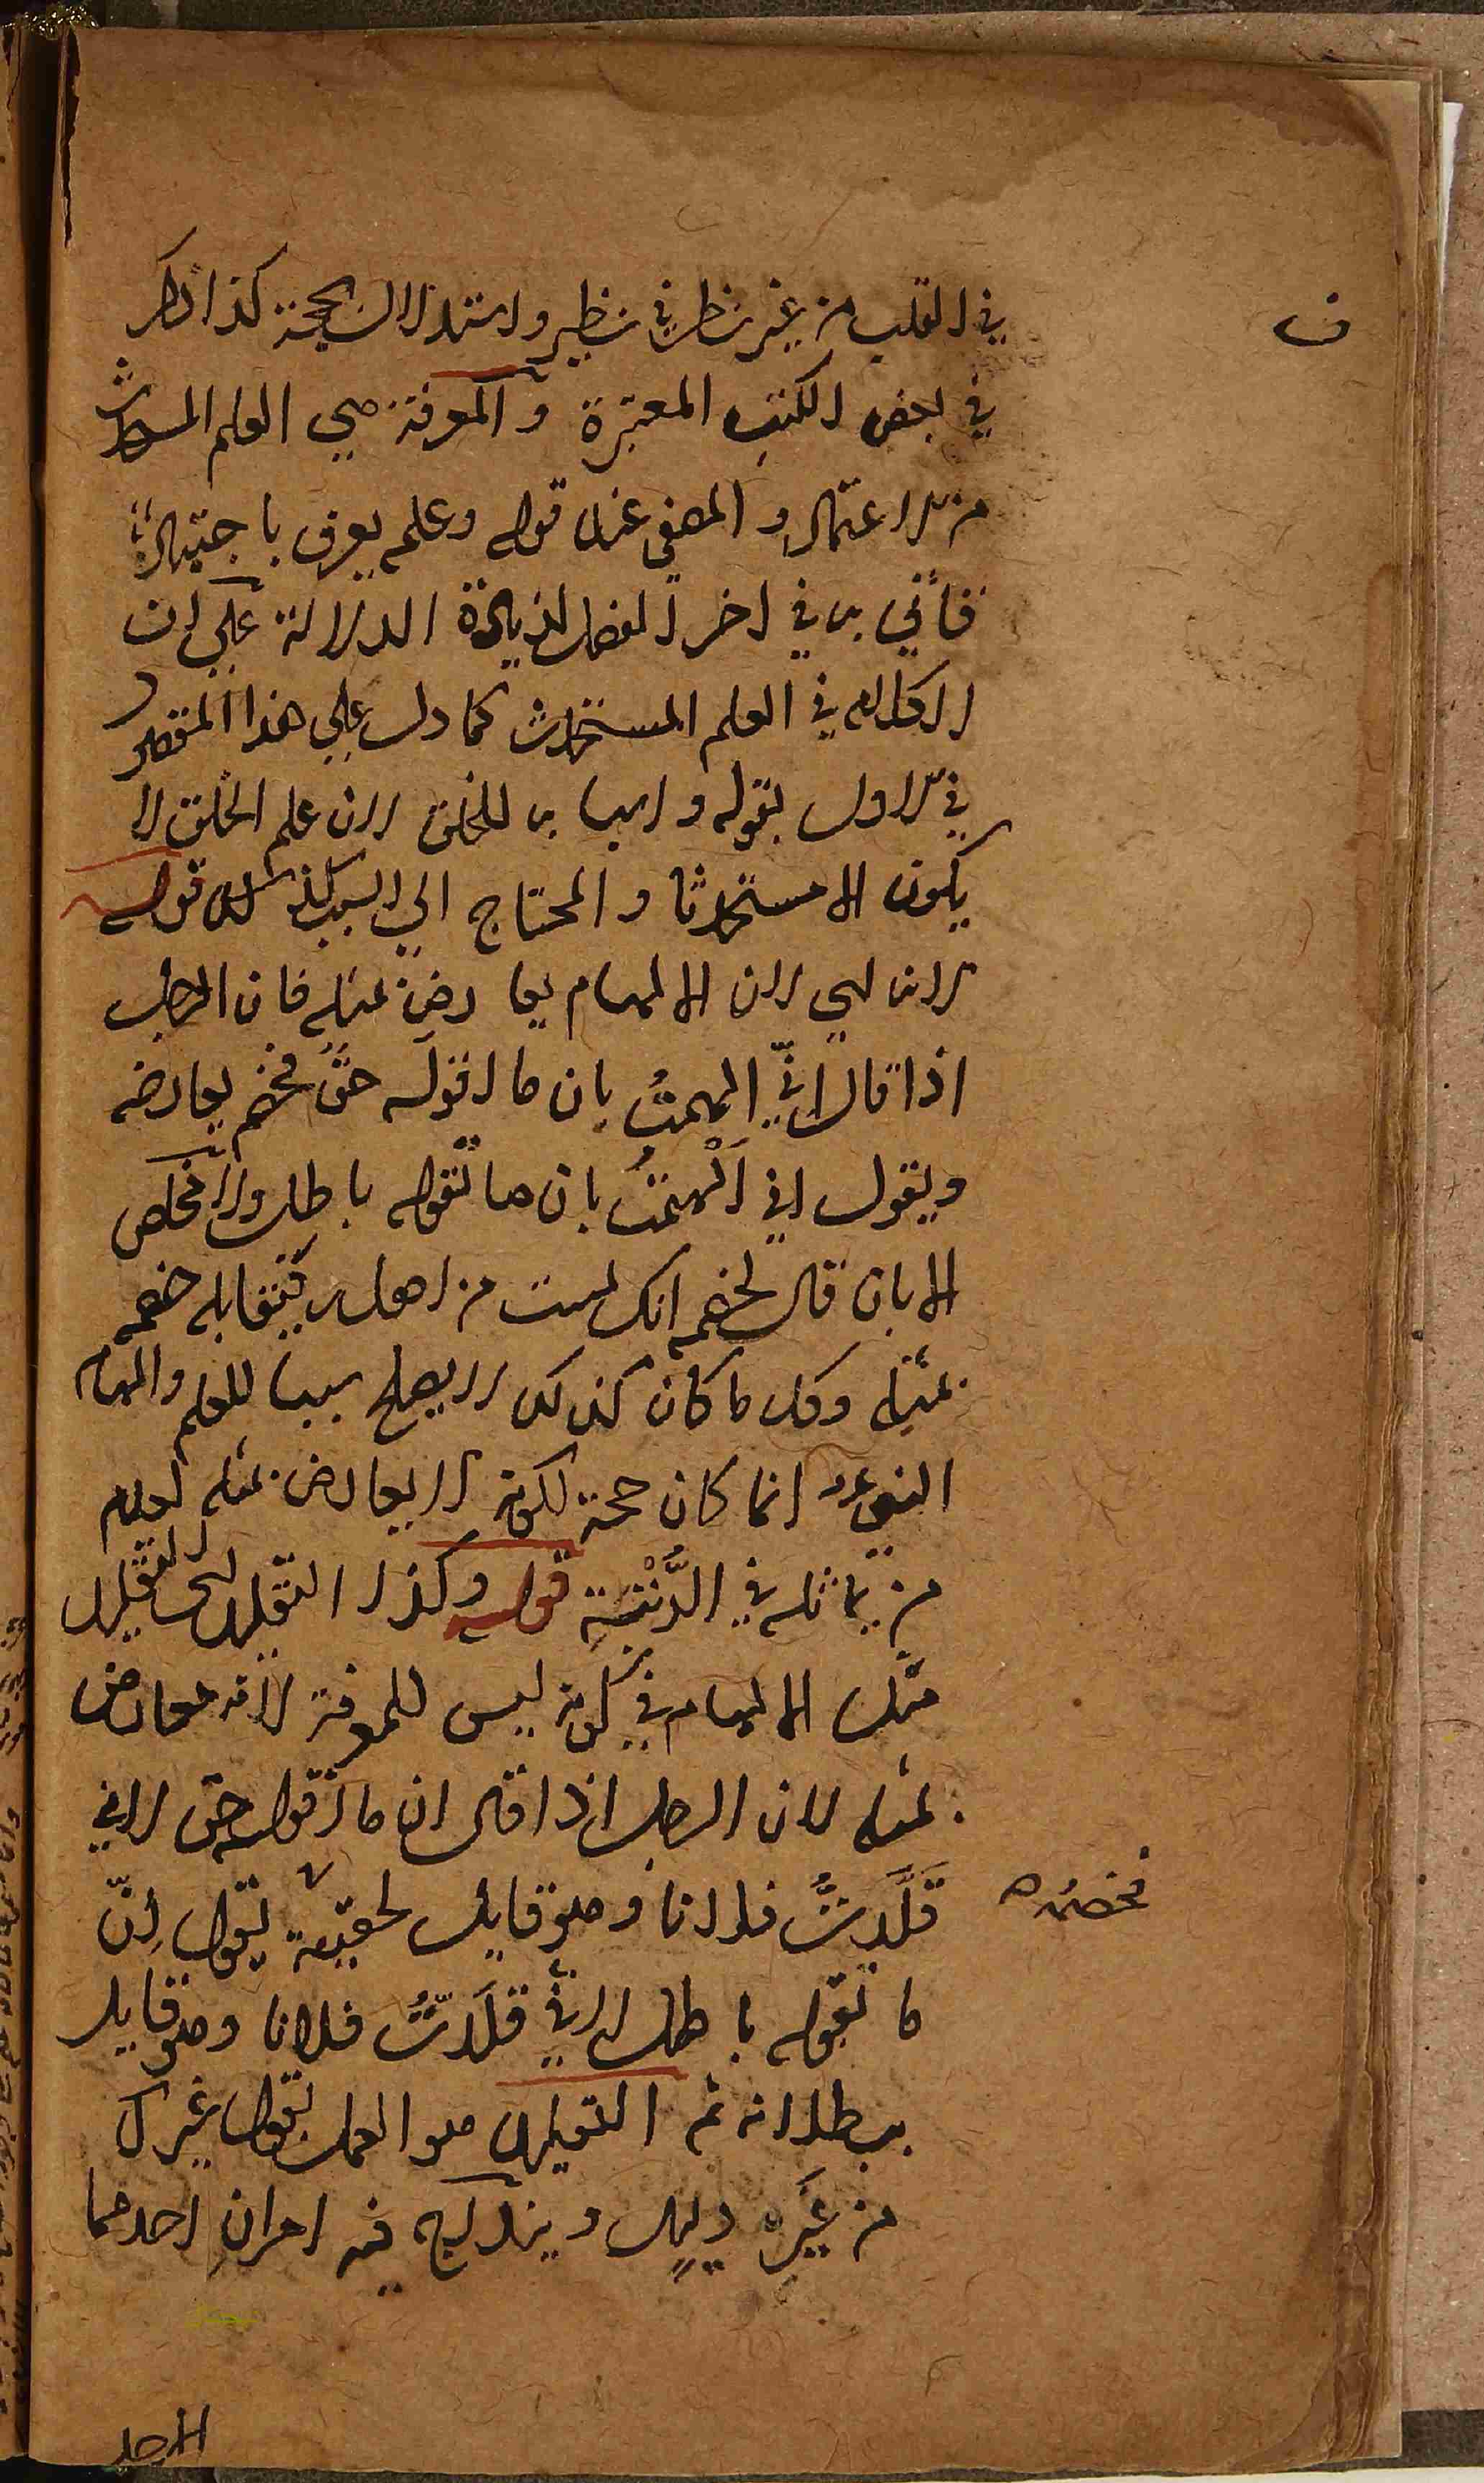 في القلب من غير نظر في نظير واستدلال بحجة كذا ذكر
في بعض الكتب المعتبرة والمعرفة هي العلم المستحدث
من الاعتمال والمعنى عند قوله وعلم يعرف باجتهاد
فأتي به في اخر الفصل لزيادة الدلالة علي ان
الكلام في العلم المستحدث كما دل علي هذا المقصد
في الاول بقوله واسباب للخلق لان علم الخلق لا
يكون الا مستحدثا والمحتاج الي السبب كذلك قوله
لانه اي لان الالهام يعارض بمثله فان الرجل
اذا قال اني الهمتُ بان ما اقوله حق فخصمه يعارضه
ويقول اني اُلْهمتُ بان ما تقوله باطل ولا مخلص
الا بان قال لخصمه انك لست من اهله فيقابله خصمه
بمثله وكل ما كان كذلك لا يصلح سببا للعلم والهام
النبي عم انما كان حجة لكونه لا يعارض بمثله لعدم
من يماثله في الرُّتْبَةِ قوله وكذا التقليد اي التقليد
مثل الالهام في كونه ليس للمعرفة لانه معارض
بمثله لان الرجل اذا قال ان ما اقوله حق لاني
قَلَّدتُّ فلانا وهو قايل لحقيته يقول اِنّ
فخصمُه
ما تقوله باطل لاني قَلَّدتُّ فلانا وهو قايل
ببطلانه ثم التقليد هو العمل بقول غيرك
من غَيرِ دليلٍ ويندرج فيه امرانِ احدهما